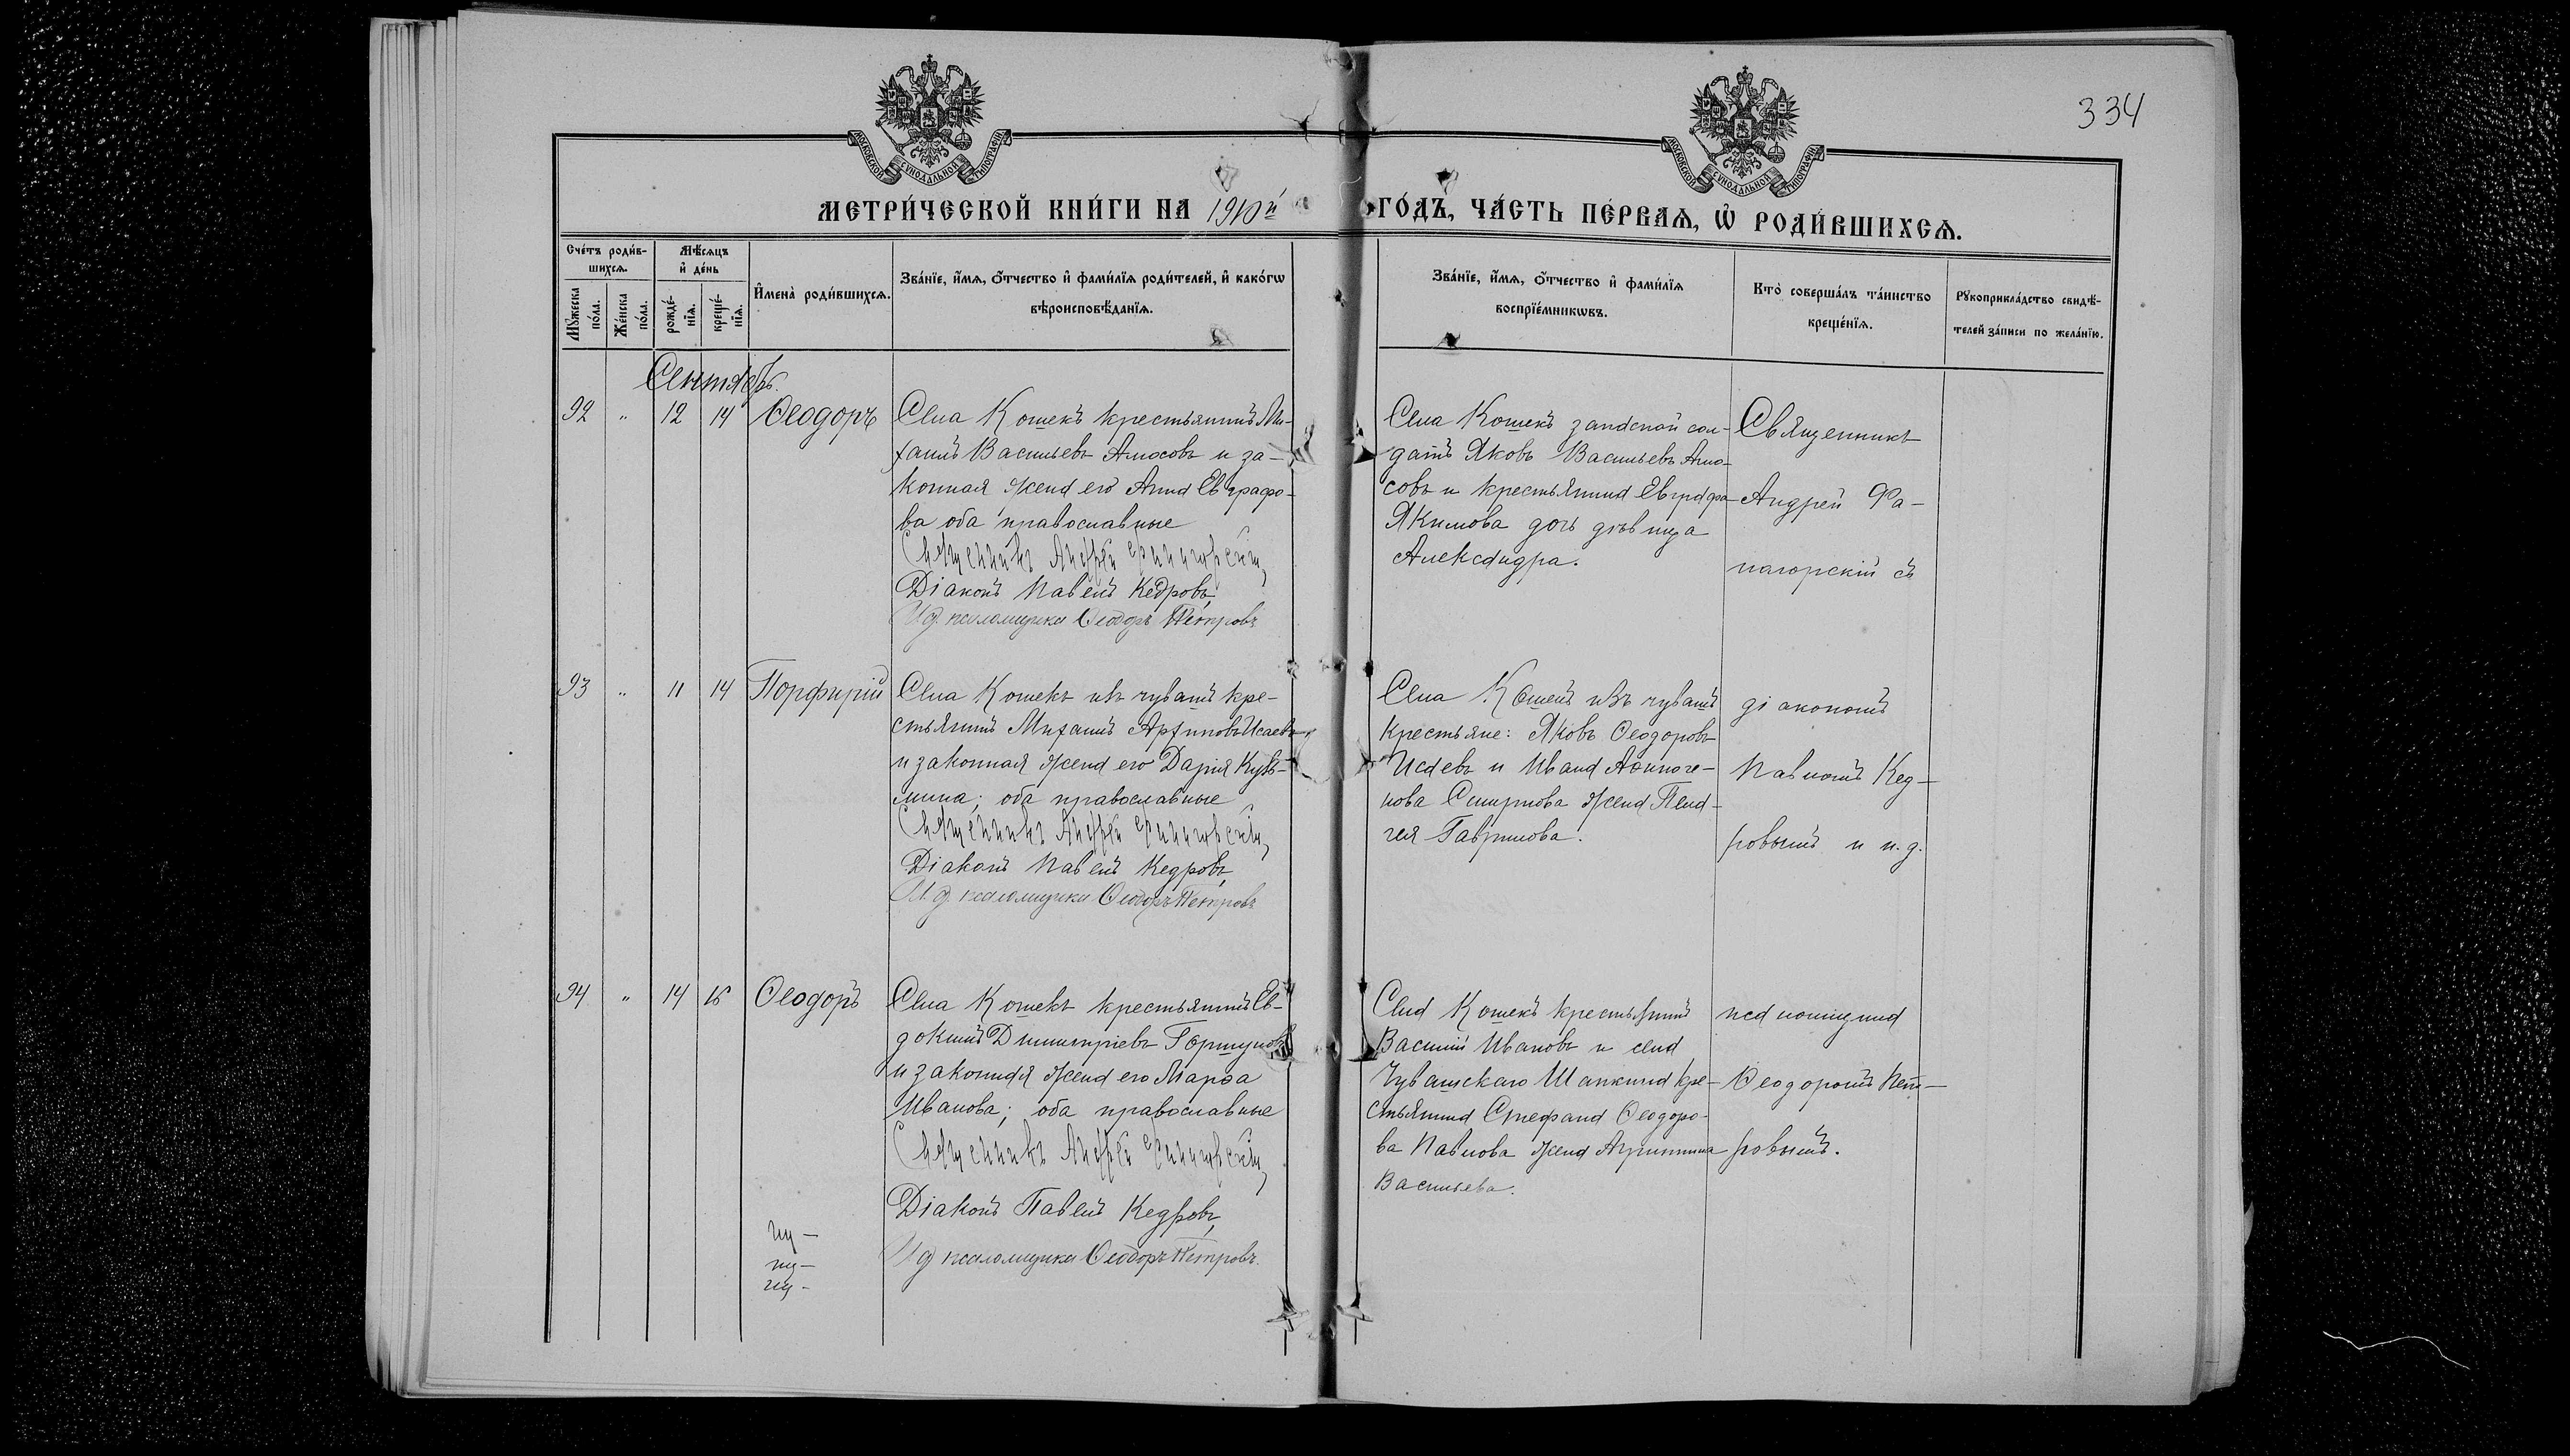 334
МОСКОВСКОЙ СѴНОДАЛЬНОЙ ТИПОГРАФІИ
МОСКОВСКОЙ СѴНОДАЛЬНОЙ ТИПОГРАФІИ
МЕТРИ́ЧЕСКОЙ КНИ́ГИ НА 1910й
ГО́ДЪ, ЧА́СТЬ ПЕ́РВАѦ, Ѡ҆ РОДИ́ВШИХСѦ.
Сче́тъ роди́в-
шихсѧ.
Мꙋ́жеска по́ла.
Же́нска по́ла.
Мѣ́сѧцъ
и҆ де́нь
рожде́-
нїѧ.
креще́-
нїѧ.
И҆мена̀ роди́вшихсѧ.
Зва́нїе, и҆́мѧ, ѻ҆́тчество и҆ фами́лїѧ роди́телей, и҆ како́гѡ
вѣроисповѣ́данїѧ.
Зва́нїе, и҆́мѧ, ѻ҆́тчество и҆ фами́лїѧ
воспрїе́мникѡвъ.
Кто̀ соверша́лъ та́инство
креще́нїѧ.
Рꙋкоприкла́дство свидѣ́-
телей за́писи по жела́нїю.
Сентябрь.
92 " 12 14 Ѳеодоръ
Села Кошекъ крестьянинъ Ми-
хаилъ Васильевъ Амосовъ и за-
конная жена его Анна Евграфо-
ва оба православные
Священникъ Андрей Фанагорскій,
Діаконъ Павелъ Кедровъ,
И.д. псаломщика Ѳеодоръ Петровъ
Села Кошекъ запасной сол-
датъ Яковъ Васильевъ Амо-
совъ и крестьянина Евграфа
Якимова дочь дѣвица
Александра.
Священникъ
Андрей Фа-
нагорскій съ
93 " 11 14 Порфирій
Села Кошекъ изъ чувашъ кре-
стьянинъ Михаилъ Архиповъ Исаевъ
и законная жена его Дарія Кузь-
мина; оба православные
Священникъ Андрей Фанагорскій,
Діаконъ Павелъ Кедровъ,
И.д. псаломщика Ѳеодоръ Петровъ
Села Кошекъ изъ чувашъ
крестьяне: Яковъ Ѳеодоровъ
Исаевъ и Ивана Аѳиноге-
нова Смирнова жена Пела-
гея Гаврилова.
діакономъ
Павломъ Кед-
ровымъ и и.д.
94 " 14 16 Ѳеодоръ
Села Кошекъ крестьянинъ Ев-
докимъ Димитріевъ Горшуновъ
и законная жена его Марѳа
Иванова; оба православные
Священникъ Андрей Фанагорскій,
Діаконъ Павелъ Кедровъ,
И.д. псаломщика Ѳеодоръ Петровъ.
Села Кошекъ крестьянинъ
Василій Ивановъ и села
Чувашскаго Шапкина кре-
стьянина Стефана Ѳеодоро-
ва Павлова жена Агриппина
Васильева.
псаломщика
Ѳеодоромъ Пет-
ровымъ.